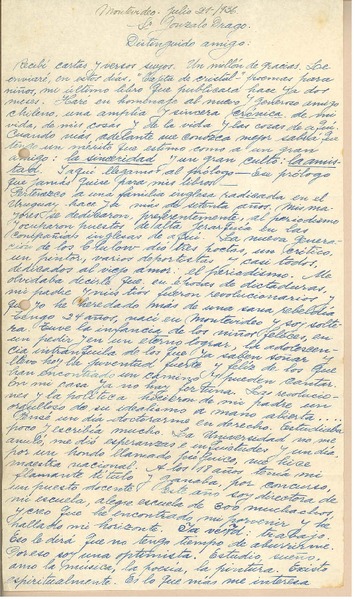 Montevideo. Julio 21-1936
Sr. Gonzalo Drago.
Distinguido amigo:
Recibí cartas y versos suyos. Un millón de gracias. Le
enviaré, en estos días, "Copita de cristal" poemas para
niños, mi último libro que publicara hace ya dos
meses. Haré en homenaje al nuevo y generoso amigo
chileno, una amplia y sincera crónica de mi
vida, de mis cosas y de la vida y las cosas de aquí.
Cuando más adelante me conozca mejor sabrá
un mérito que estimo como a un gran
amigo: la sinceridad y un gran culto: la amis-
tad. Y aquí llegamos al prólogo - Es un prólogo
que jamás quise para mis libros -
Pertenezco a una familia inglesa radicada en el
Uruguay, hace ya más de setenta años. Mis ma-
yores se dedicaron, preferentemente, al periodismo
y ocuparon puestos de alta jerarquía en las
Compañías inglesas de aquí. La nueva genera-
ción de los dió tres poetas, un crítico,
un pintor, varios deportistas y casi todos,
dedicados al viejo amor: el periodismo. Me
olvidaba decirle que, en épocas de dictaduras,
mi padre y mis tíos fueron revolucionarios y
que yo he heredado más de una sana rebeldía
Tengo 24 años, nací en Montevideo y soy solte-
ra. Tuve la infancia de los niños felices, en
un pedir y en un eterno lograr, la adolescen-
cia intranquila de los que ya saben soñar y
llevo hoy la juventud fuerte y feliz de los que
han encontrado un camino y pueden cantar.
En mi casa ya no hay fortuna. Las revolucio-
nes y la política hicieron de mi padre un
orgulloso de su idealismo a mano abierta.
Pensé un día doctorarme en derecho. Estudiaba
poco y escribía mucho. La Universidad no me
anuló, me dió esperanzas e inquietudes y un día
por un hondo llamado psicológico, me hice
maestra nacional. A los 18 años tenía mi
flamante título y ganaba, por concurso,
un puesto docente. Este año soy directora de
mi escuela, alegre escuela de 300 muchachos,
y creo que he encontrado mi porvenir y he
hallado mi horizonte. Ya verá: trabajo.
Eso le dirá que no tengo tiempo de aburrirme.
Por eso soy una optimista. Estudio, sueño,
amo la música, la poesía, la pintura. Existo
espiritualmente. Es lo que más me interesa